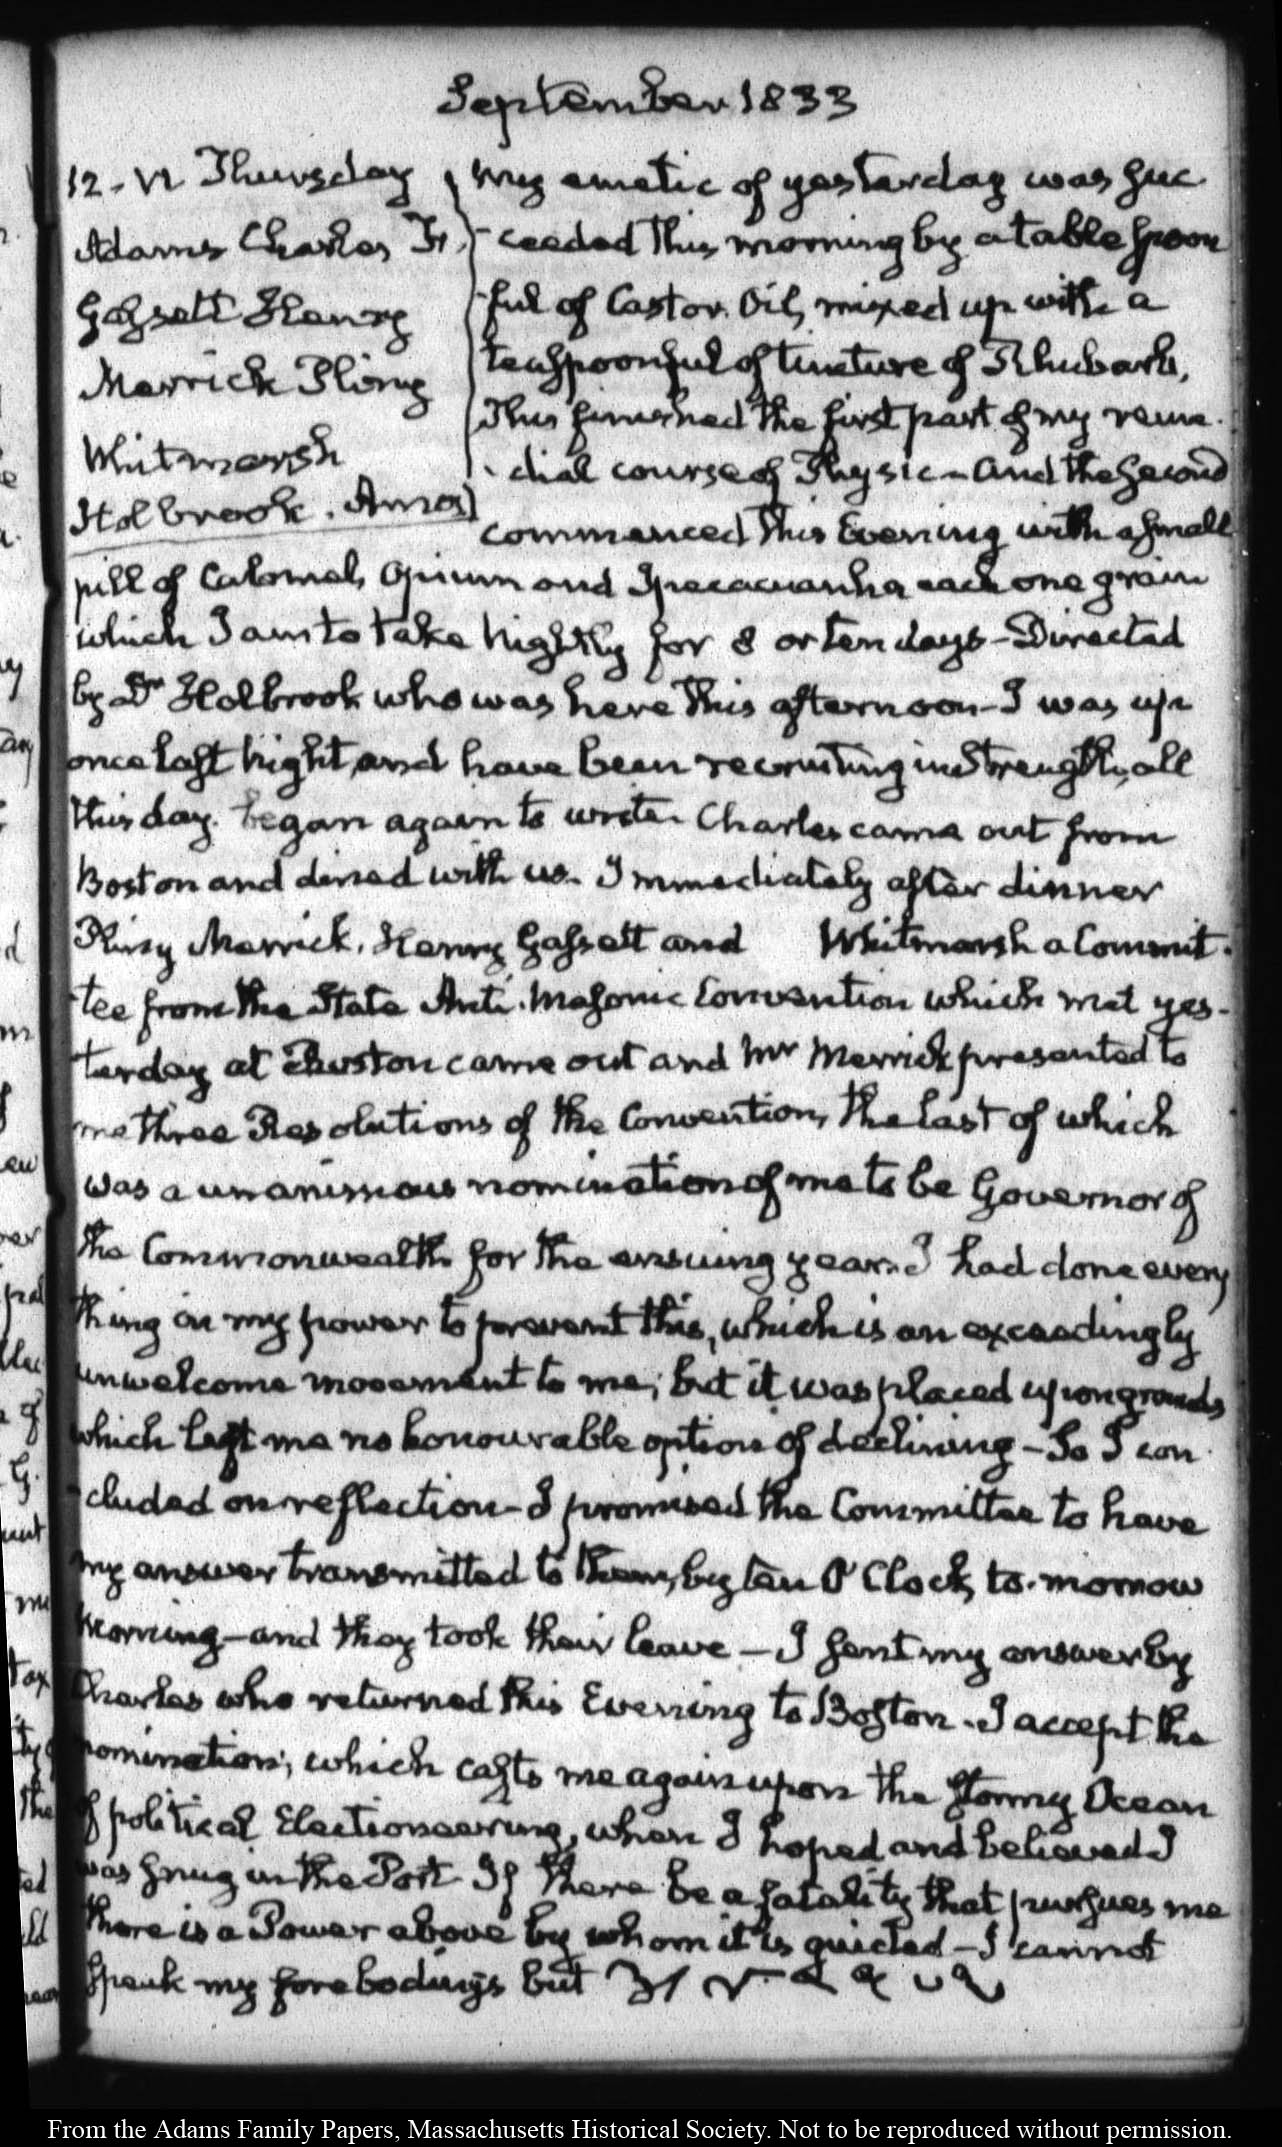 September 1833
12. VI. Thursday
Adams Charles Fr.
Gassett Henry
Merrick Pliny
Whitmarsh
Holbrook. Amos
My emetic of yesterday was suc-
ceeded this morning by a table spoon
ful of Castor Oil, mixed up with a
teaspoonful of tincture of Rhubarb,
This finished the first part of my reme-
dial course of Physic – and the second
commenced this Evening with a small
pill of Calomel, Opium and Ipecacuanha each one grain
which I am to take Nightly for 8 or ten days – Directed
by Dr Holbrook who was here this afternoon – I was up
once last Night, and have been recruiting in Strength, all
this day. began again to write. Charles came out from
Boston and dined with us. Immediately after dinner
Pliny Merrick, Henry Gassett and Whitmarsh a Commit-
tee from the State Anti-Masonic Convention which met yes-
terday at Boston came out and Mr Merrick presented to
me three Resolutions of the Convention, the last of which
was a unanimous nomination of me to be Governor of
the Commonwealth for the ensuing year. I had done every
thing in my power to prevent this, which is an exceedingly
unwelcome movement to me; but it was placed upon grounds
which left me no honourable option of declining – So I con-
cluded on reflection – I promised the Committee to have
my answer transmitted to them, by ten O'Clock, to-morrow
Morning – and they took their leave – I sent my answer by
Charles who returned this Evening to Boston. I accept the
nomination; which casts me again upon the stormy Ocean
of political Electioneering, when I hoped and believed I
was snug in the Port. If there be a fatality that pursues me
there is a Power above by whom it is guided – I cannot
speak my forebodings but